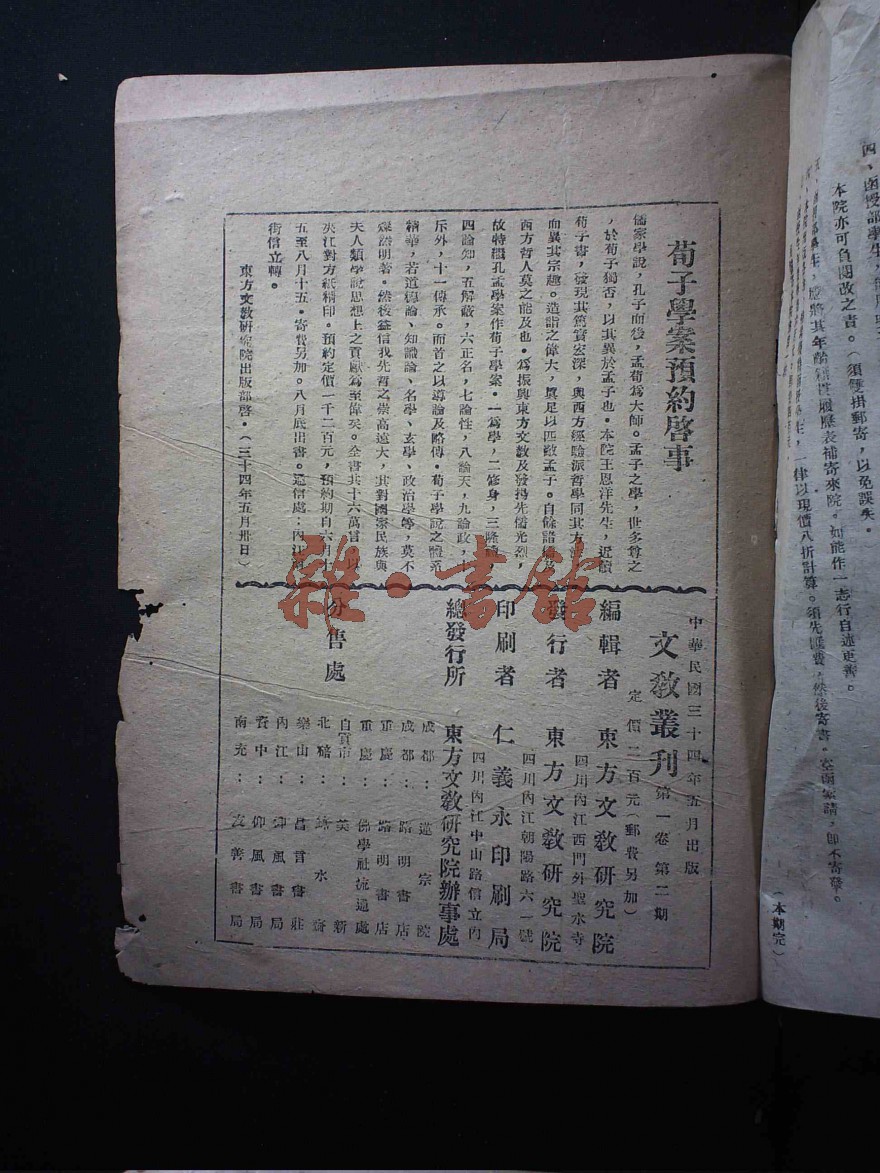 荀子學案預約啓事
儒家學說，孔子而後，孟荀爲大師。孟子之學，世多尊之
，於荀子獨否，以其異於孟子也。本院王恩洋先生，近讀
荀子書，發現其篤實宏深，與西方經驗派哲學同其方
而異其宗趣。造詣之偉大，眞足以匹敵孟子。自餘諸
西方哲人莫之能及也。爲振興東方文敎及發揚先儒光烈，
故特繼孔孟學案作荀子學案。一爲學，二修身，三隆
四論知，五解蔽，六正名，七論性，八論天，九論政，十
斥外，十一傳承。而首之以導論及略傳。荀子學說之體系
精華，若道德論、知識論、名學、玄學、政治學等，莫不
燦然明著。然後益信我先哲之崇高遠大，其對國家民族與
夫人類學說思想上之貢獻爲至偉矣。全書共十六萬言，以
夾江對方紙精印。預約定價一千二百元，預約期自六月十
五至八月十五。寄費另加。八月底出書。通信處：內江
街信立轉。
東方文敎研究院出版部啓。（三十四年五月卅日）
中華民國三十四年五月出版
文敎叢刊 第一卷 第二期
定價二百元（郵費另加）
編輯者 東方文敎研究院
四川內江西門外聖水寺
發行者 東方文敎研究院
四川內江朝陽路六一號
印刷者 仁義永印刷局
四川內江中山路信立內
總發行所 東方文敎研究院辦事處
分售處
成都：蓮宗院
成都：路明書店
重慶：路明書店
重慶：佛學社流通處
自貢市：美新
北碚：水齋
樂山：昌言書莊
內江：書局
資中：仰風書局
南充：友善書局
本院亦可負閱改之責。（須雙掛郵寄，以免誤失。
履歷表補寄來院。如能作一志行自述更善。
一律以現價八折計算。須先匯費，然後寄書。空函索請，卽不寄發。
（本期完）
雜·書館